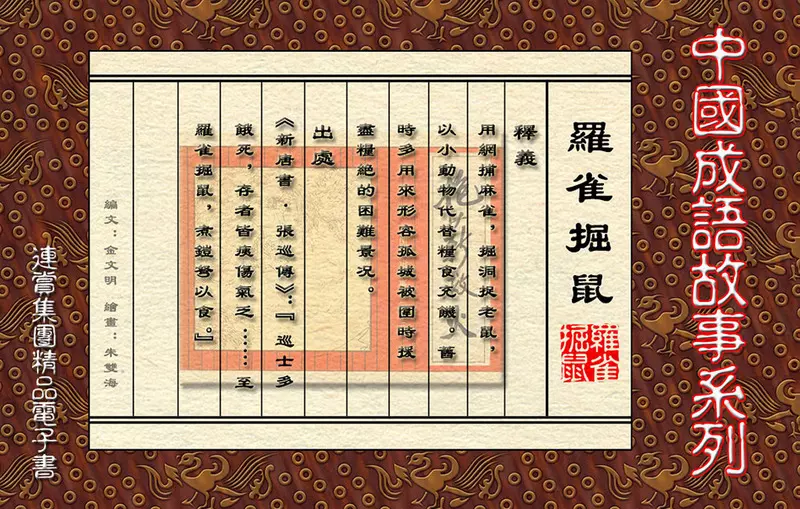 中國成語故事系列
羅雀掘鼠
羅雀掘鼠
釋義
用網捕麻雀，掘洞捉老鼠，
以小動物代替糧食充饑。舊
時多用來形容孤城被圍時援
盡糧絕的困難景况。
出處
《新唐書·張巡傳》：『巡士多
餓死，存者皆痍傷氣乏……至
羅雀掘鼠，煮鎧弩以食。』
編文：金文明 繪畫：朱雙海
連賞集團精品電子書